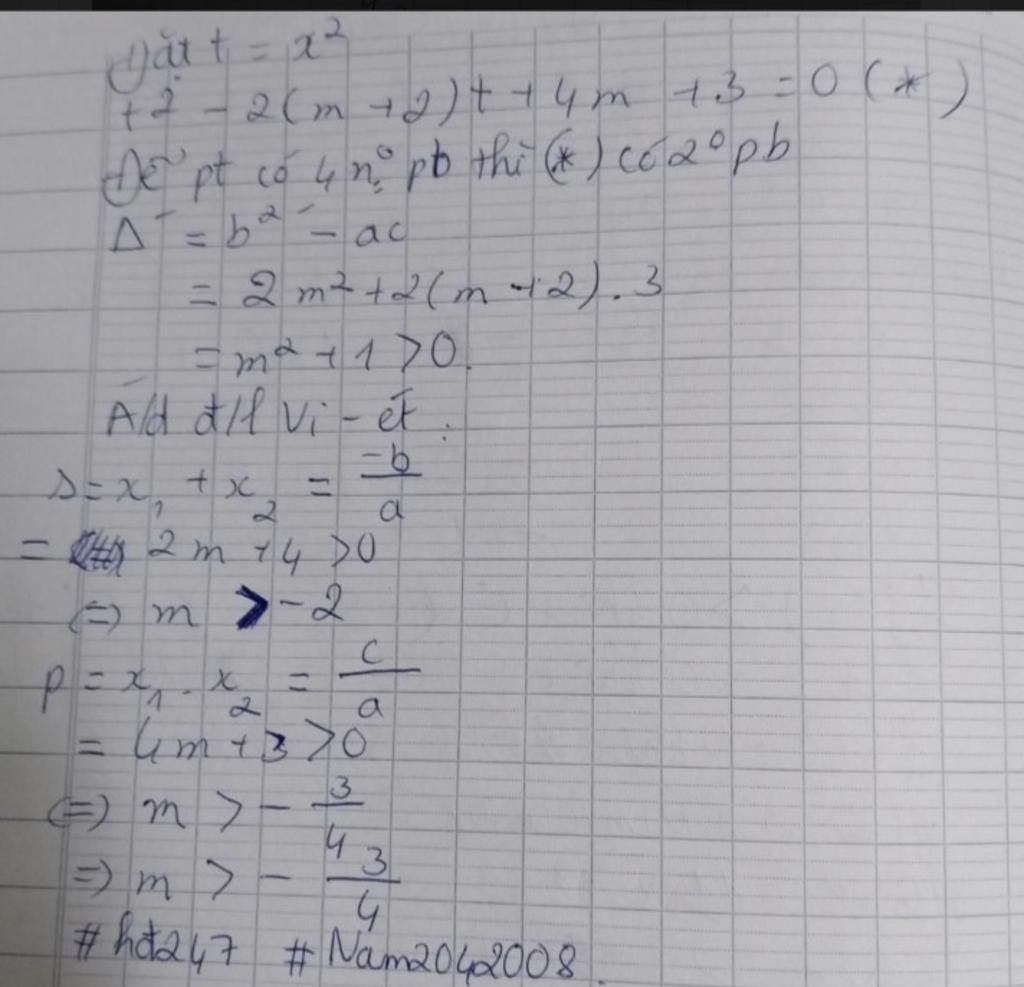 Đặt t = x²
t² - 2(m + 2)t + 4m + 3 = 0 (*)
Để pt có 4 n° pb thì (*) có 2° pb
Δ' = b'² - ac
= 2m² + 2(m + 2).3
= m² + 1 > 0
A/d đ/l Vi-ét :
S = x₁ + x₂ = -b/a
= 2m + 4 > 0
(=) m > -2
P = x₁ . x₂ = c/a
= 4m + 3 > 0
(=) m > - 3/4
=) m > - 3/4
#hđt247 #Nam2042008